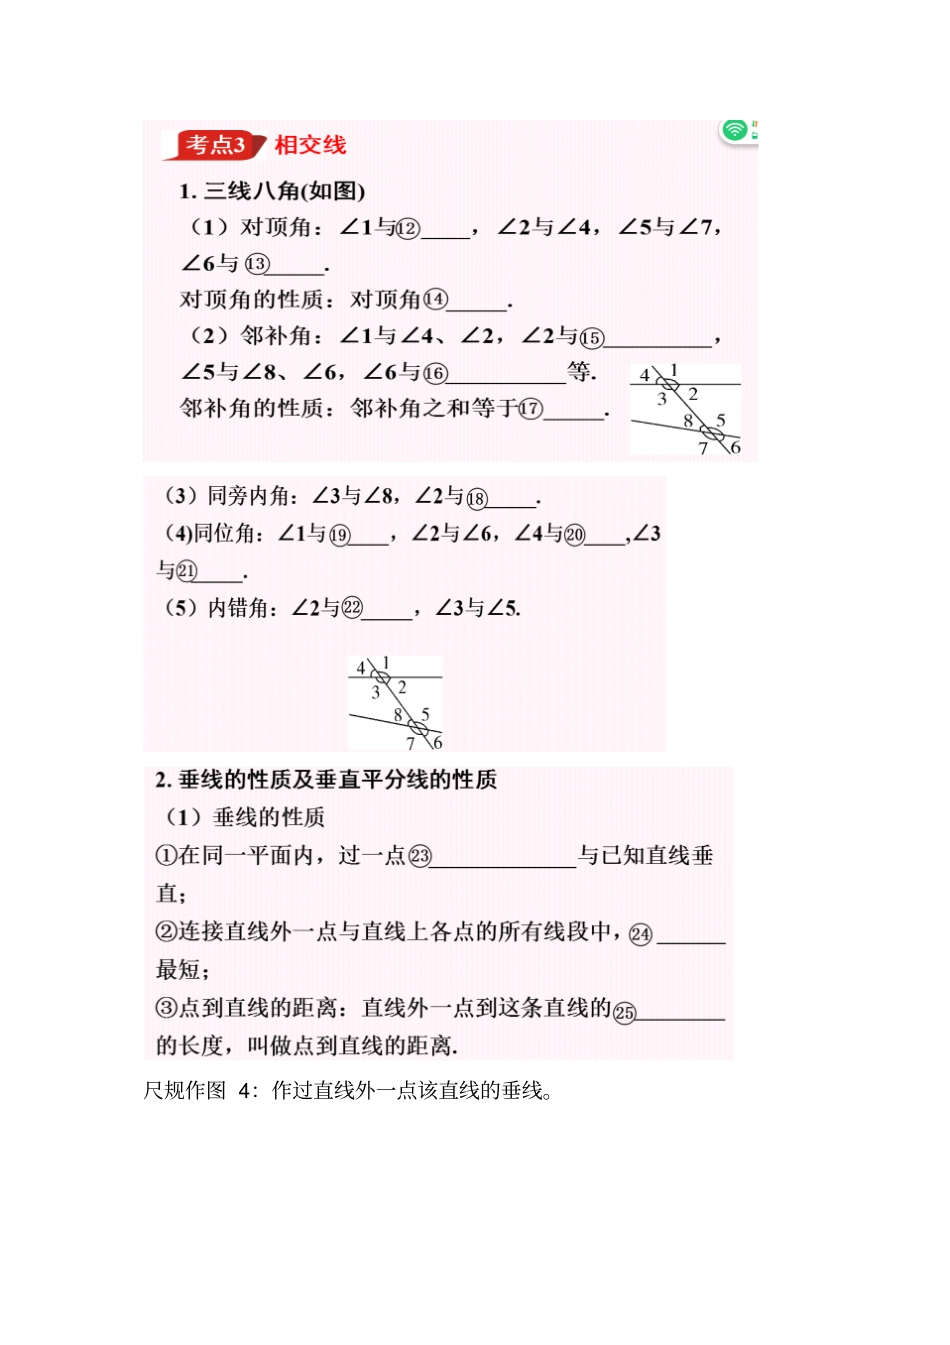 考点3 相交线
1. 三线八角(如图)
（1）对顶角：∠1与⑫____，∠2与∠4，∠5与∠7，
∠6与⑬_____.
对顶角的性质：对顶角⑭_____.
（2）邻补角：∠1与∠4、∠2，∠2与⑮_________，
∠5与∠8、∠6，∠6与⑯__________等.
邻补角的性质：邻补角之和等于⑰_____.
4 1
3 2
8 5
7 6
（3）同旁内角：∠3与∠8，∠2与⑱_____.
（4)同位角：∠1与⑲____，∠2与∠6，∠4与⑳____,∠3
与㉑_____.
（5）内错角：∠2与㉒_____，∠3与∠5.
4 1
3 2
8 5
7 6
2. 垂线的性质及垂直平分线的性质
（1）垂线的性质
①在同一平面内，过一点㉓_____________与已知直线垂
直；
②连接直线外一点与直线上各点的所有线段中，㉔______
最短；
③点到直线的距离：直线外一点到这条直线的㉕________
的长度，叫做点到直线的距离.
尺规作图 4：作过直线外一点该直线的垂线。